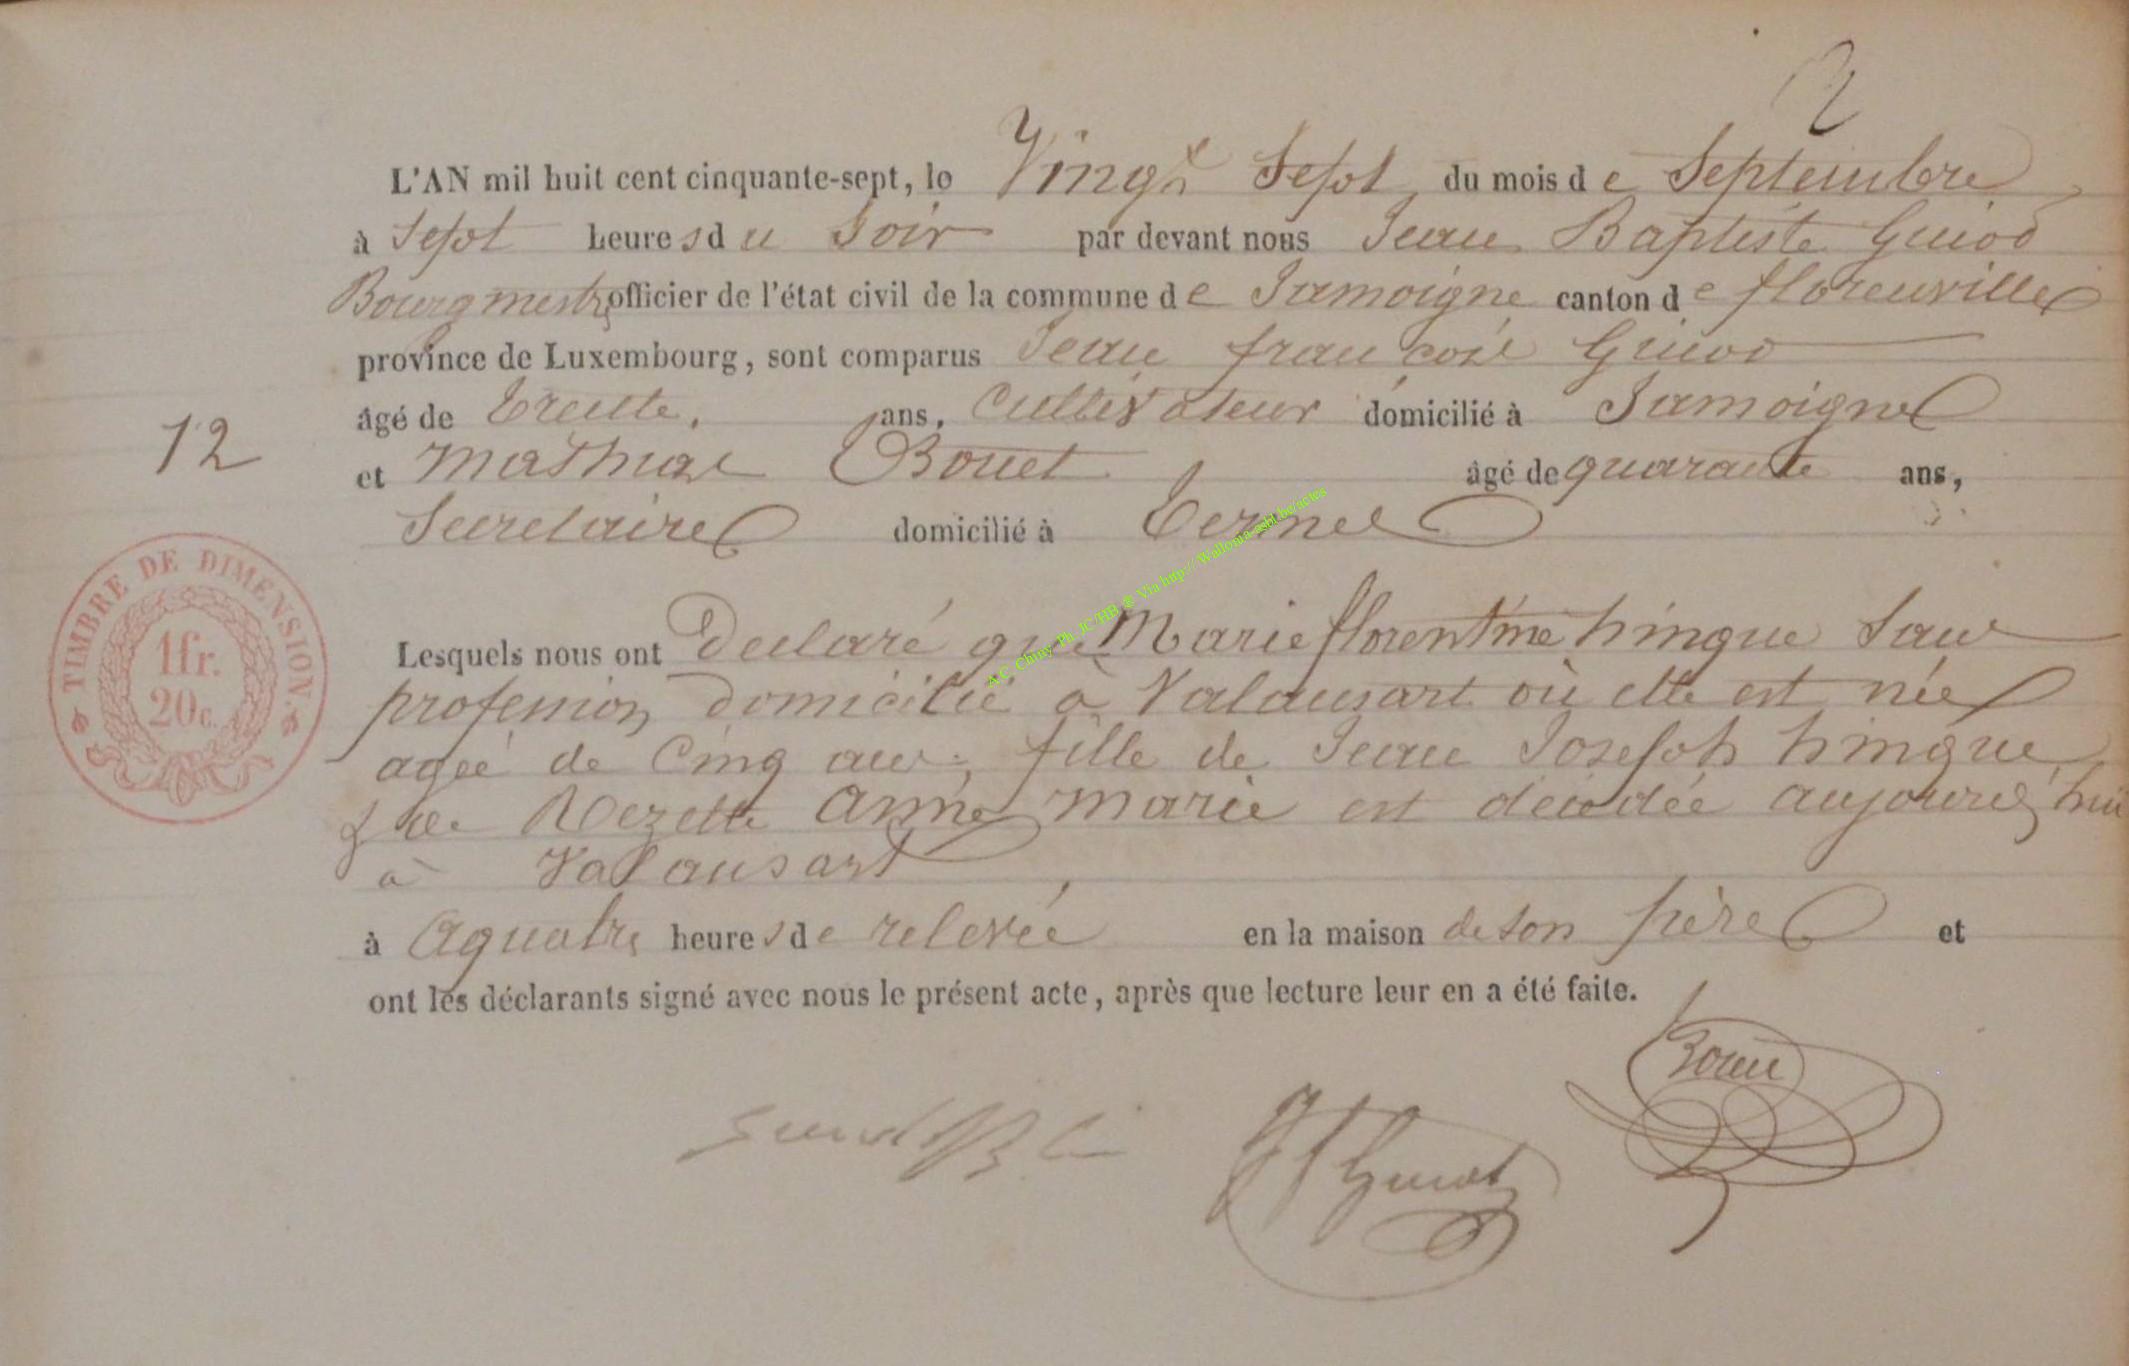 2
L'AN mil huit cent cinquante-sept, le Vingt Sept du mois de Septembre
à Sept heures du Soir par devant nous Jean Baptiste Guiot
Bourgmestre officier de l'état civil de la commune de Jamoigne canton de florenville
province de Luxembourg, sont comparus Jean françois Guiot
âgé de trente, ans, Cultivateur domicilié à Jamoigne
12
et Mathias Bouet âgé de quarante ans,
Secretaire domicilié à termes
TIMBRE DE DIMENSION.
1fr.
20c.
AC Chiny Ph JC/HB @ Via http://Wallonia-asbl.be/actes
Lesquels nous ont declaré que Marie florentine hingue Sans
profession domicilié à Valansart où elle est née
agée de Cinq ans, fille de Jean Joseph hingue
& de Rezette Anne Marie est décédée aujourd'hui
à Valansart
à Aquatre heures de relevée en la maison de son père et
ont les déclarants signé avec nous le présent acte, après que lecture leur en a été faite.
Bouet
JF Guiot